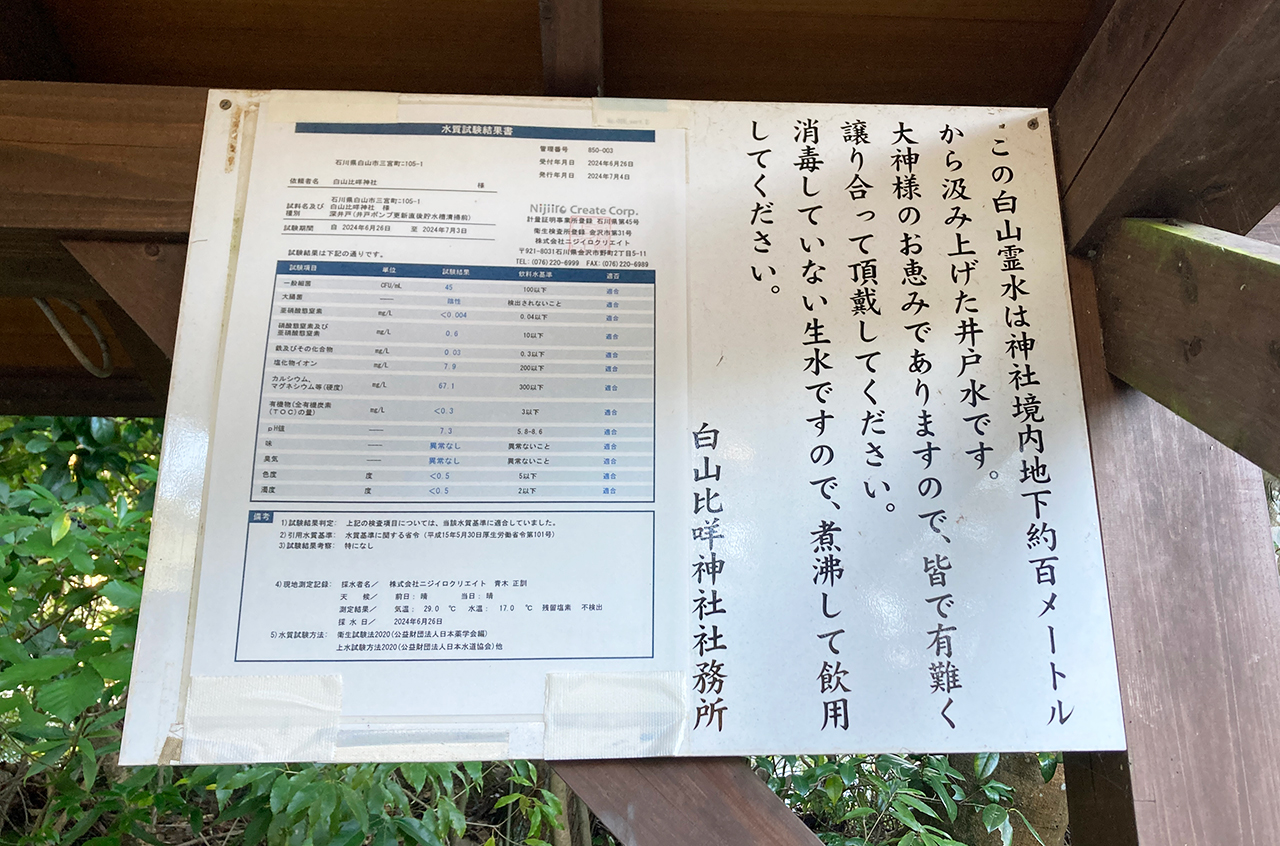 この白山霊水は神社境内地下約百メートル
から汲み上げた井戸水です。
大神様のお恵みでありますので、皆で有難く
譲り合って頂戴してください。
消毒していない生水ですので、煮沸して飲用
してください。
白山比咩神社社務所
水質試験結果書
管理番号 850-003
受付年月日 2024年6月26日
発行年月日 2024年7月4日
石川県白山市三宮町ﾆ105-1
依頼者名 白山比咩神社 様
石川県白山市三宮町ﾆ105-1
試料名及び 白山比咩神社 様
種別 深井戸(井戸ポンプ更新直後貯水槽清掃前)
試験期間 自 2024年6月26日 至 2024年7月3日
Nijiiro Create Corp.
計量証明事業所登録 石川県第45号
衛生検査所登録 金沢市第31号
株式会社ニジイロクリエイト
〒921-8031石川県金沢市野町2丁目5-11
TEL:(076)220-6999 FAX:(076)220-6989
試験結果は下記の通りです。
試験項目 単位 試験結果 飲料水基準 適否
一般細菌 CFU/mL 45 100以下 適合
大腸菌 ―― 陰性 検出されないこと 適合
亜硝酸態窒素 mg/L <0.004 0.04以下 適合
硝酸態窒素及び
亜硝酸態窒素 mg/L 0.6 10以下 適合
鉄及びその化合物 mg/L 0.03 0.3以下 適合
塩化物イオン mg/L 7.9 200以下 適合
カルシウム、
マグネシウム等(硬度) mg/L 67.1 300以下 適合
有機物(全有機炭素
(TOC)の量) mg/L <0.3 3以下 適合
pH値 ―― 7.3 5.8-8.6 適合
味 ―― 異常なし 異常ないこと 適合
臭気 ―― 異常なし 異常ないこと 適合
色度 度 <0.5 5以下 適合
濁度 度 <0.5 2以下 適合
備考
1)試験結果判定: 上記の検査項目については、当該水質基準に適合していました。
2)引用水質基準: 水質基準に関する省令(平成15年5月30日厚生労働省令第101号)
3)試験結果考察: 特になし
4)現地測定記録: 採水者名/ 株式会社ニジイロクリエイト 青木 正訓
天 候/ 前日: 晴 当日: 晴
測定結果/ 気温: 29.0 ℃ 水温: 17.0 ℃ 残留塩素 不検出
採 水 日/ 2024年6月26日
5)水質試験方法: 衛生試験法2020(公益財団法人日本薬学会編)
上水試験方法2020(公益財団法人日本水道協会)他